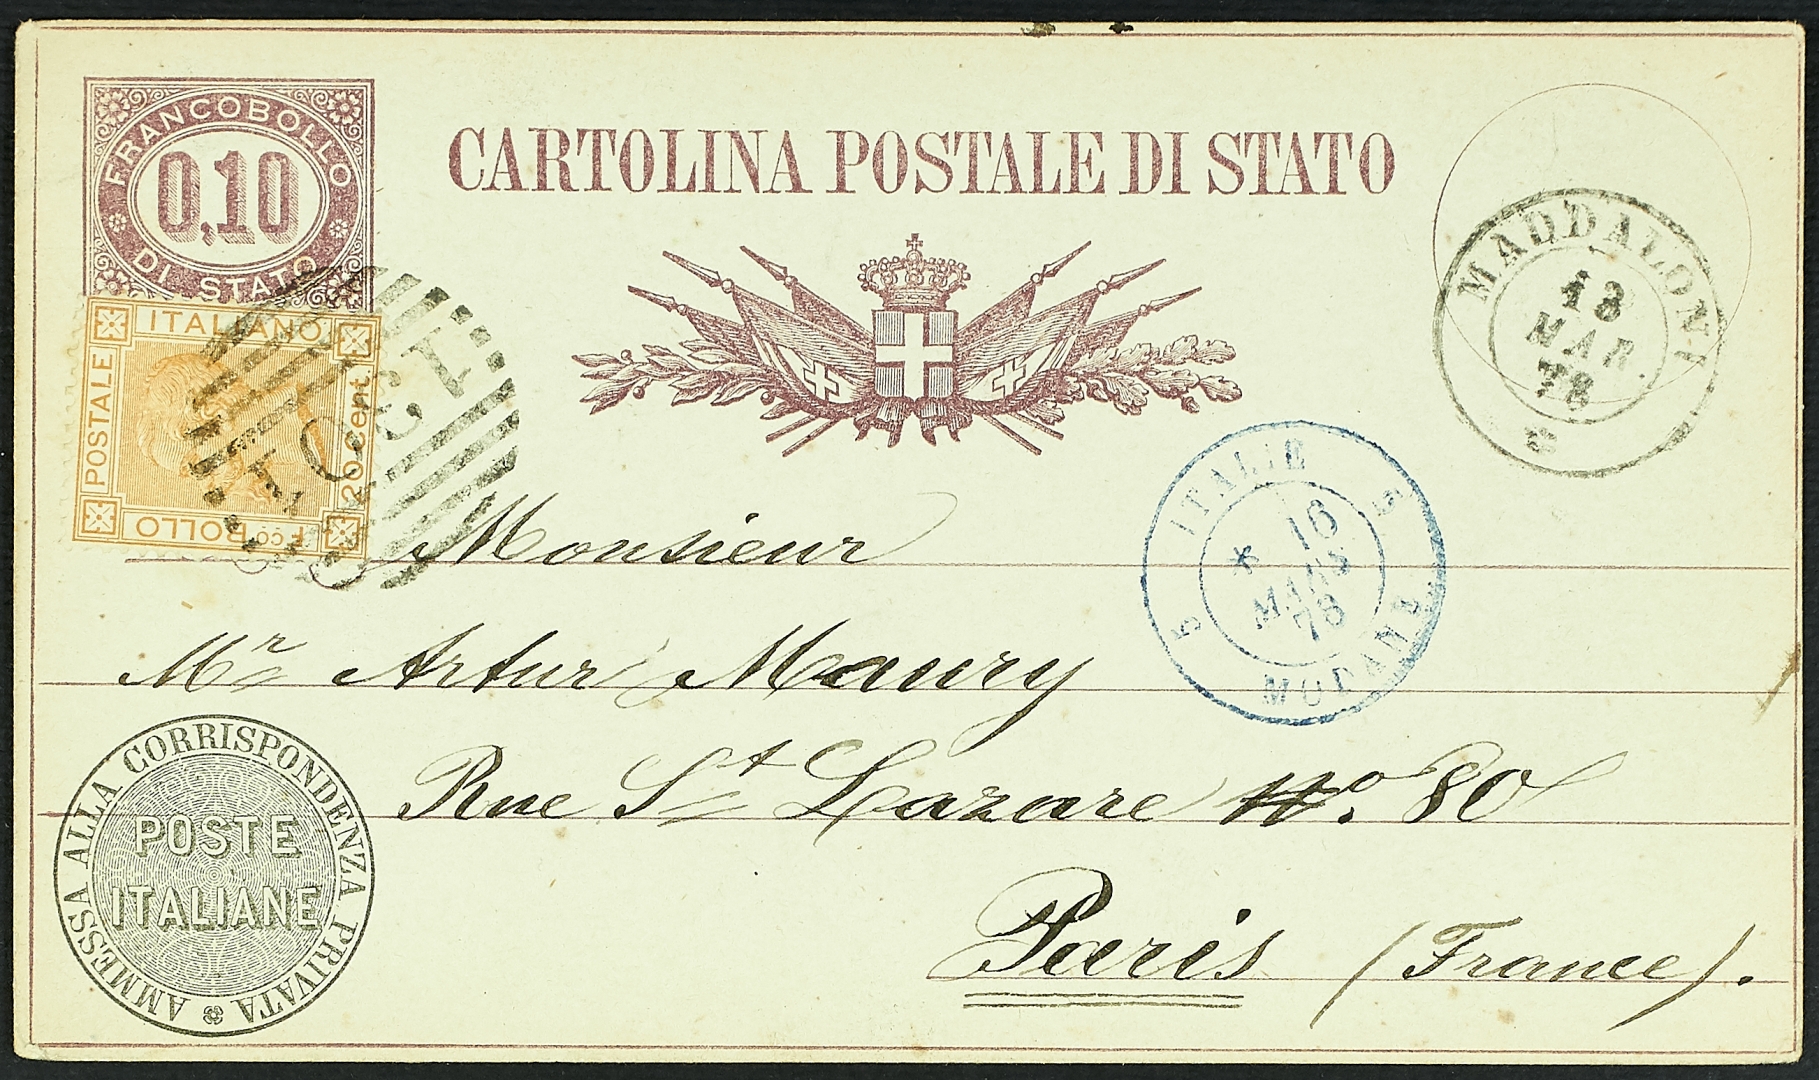 FRANCOBOLLO
0,10
DI STATO
CARTOLINA POSTALE DI STATO
MADDALONI
13
MAR.
78
POSTALE
ITALIANO
20 cent.
Fco BOLLO
ITALIE
5 5
16
MARS
78
MODANE
Monsieur
Mr Artur Maury
Rue St Lazare No. 80
Paris (France).
AMMESSA ALLA CORRISPONDENZA PRIVATA
POSTE
ITALIANE